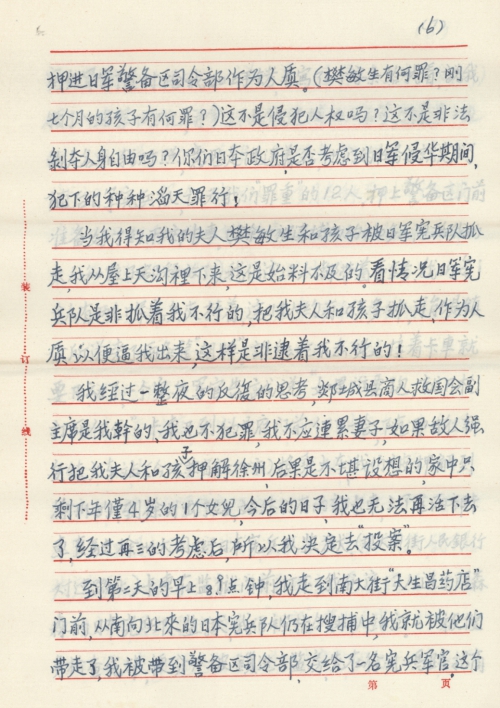 (6)
押进日军警备区司令部作为人质。(樊敏生有何罪？刚
七个月的孩子有何罪？)这不是侵犯人权吗？这不是非法
剥夺人身自由吗？你们日本政府,是否考虑到日军侵华期间,
犯下的种种滔天罪行；
当我得知我的夫人,樊敏生和孩子被日军宪兵队抓
走,我从屋上天沟裡下来,这是始料不及的。看情况日军宪
兵队是非抓着我不行的,把我夫人和孩子抓走,作为人
质,以便逼我出来,这样是非逮着我不行的！
我经过一整夜的反復的思考,郯城县商人救国会副
主席是我幹的、我也不犯罪,我不应連累妻子,如果敌人强
行把我夫人和孩子押解徐州,后果是不堪设想的,家中只
剩下年僅4岁的1个女児,今后的日子,我也无法再活下去
了,经过再三的考虑后,所以我决定去"投案"。
到第二天的早上8,9点钟,我走到南大街"大生昌药店"
门前,从南向北來的日本宪兵队仍在搜捕中,我就被他们
带走了,我被带到警备区司令部,交给了一名宪兵军官,这个
装
订
线
第 页